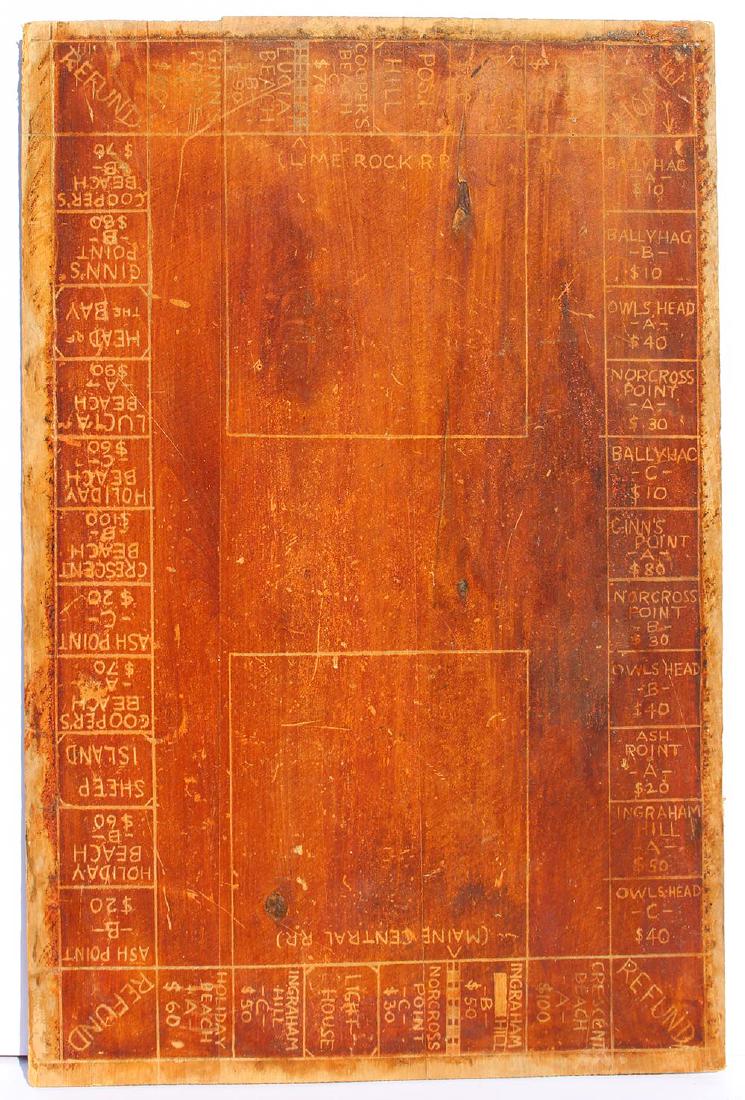 REFUND
GINN'S
POINT
LUCIA
BEACH
-B-
$90
COOPER'S
BEACH
-C-
$70
POST
HILL
HOME
(LIME ROCK RR
BALLYHAC
-A-
$10
BALLYHAC
-B-
$10
OWLS HEAD
-A-
$40
NORCROSS
POINT
-A-
$30
BALLYHAC
-C-
$10
GINN'S
POINT
-A-
$80
NORCROSS
POINT
-B-
$30
OWLS HEAD
-B-
$40
ASH
POINT
-A-
$20
INGRAHAM
HILL
-A-
$50
OWLS HEAD
-C-
$40
REFUND
CRESCENT
BEACH
-A-
$100
INGRAHAM
HILL
-B-
$50
NORCROSS
POINT
-C-
$30
LIGHT
HOUSE
INGRAHAM
HILL
-C-
$50
HOLIDAY
BEACH
-A-
$60
(MAINE CENTRAL RR)
REFUND
ASH POINT
-B-
$20
HOLIDAY
BEACH
-B-
$60
SHEEP
ISLAND
COOPER'S
BEACH
-A-
$70
ASH POINT
-C-
$20
CRESCENT
BEACH
-B-
$100
HOLIDAY
BEACH
-C-
$60
LUCIA
BEACH
-A-
$90
HEAD OF
THE BAY
GINN'S
POINT
-B-
$80
COOPER'S
BEACH
-B-
$70